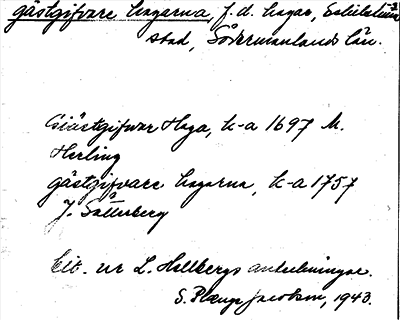 gästgifvare hagarna, f.d. hagar, Eskilstuna
stad, Södermanlands län.
Giästgifwar Haga, k-a 1697 M.
Herling
gästgifvare hagarna, k-a 1757
J. Sätterberg
Elt. ur L. Hellbergs anteckningar.
S. Plænge Jacobson, 1943.